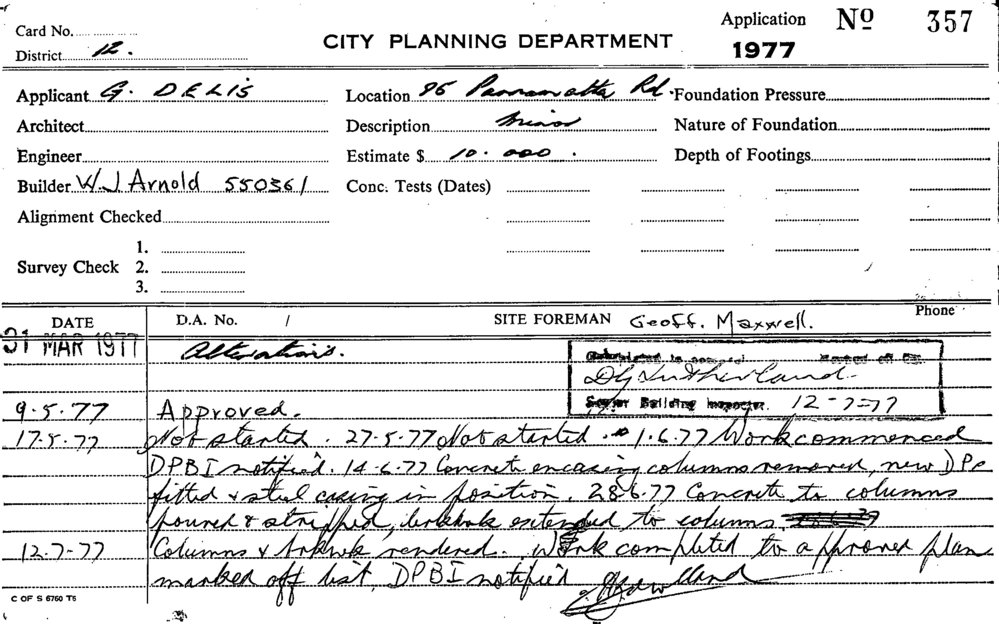 Application Nº 357
Card No.
District 12.
CITY PLANNING DEPARTMENT
1977
Applicant G. DELIS
Location 96 Parramatta Rd.
Foundation Pressure
Architect
Description Minor
Nature of Foundation
Engineer
Estimate $ 10.000.
Depth of Footings
Builder W.J Arnold 550361
Conc. Tests (Dates)
Alignment Checked
Survey Check
1.
2.
3.
DATE
D.A. No. /
SITE FOREMAN Geoff. Maxwell.
Phone
31 MAR 1977
Alterations.
DG Sutherland
Senior Building Inspector. 12-7-77
9.5.77 Approved.
17.5.77 Not started. 27-5-77 Not started. 1.6.77 Work commenced
DPBI notified. 14-6.77 Concrete encasing columns removed, new DPs
fitted & steel casing in position. 28.6.77 Concrete to columns
poured & stripped, brickwk extended to columns.
12.7-77 Columns & brkwk rendered. Work completed to approved plan
marked off list, DPBI notified
C OF S 6760 T5